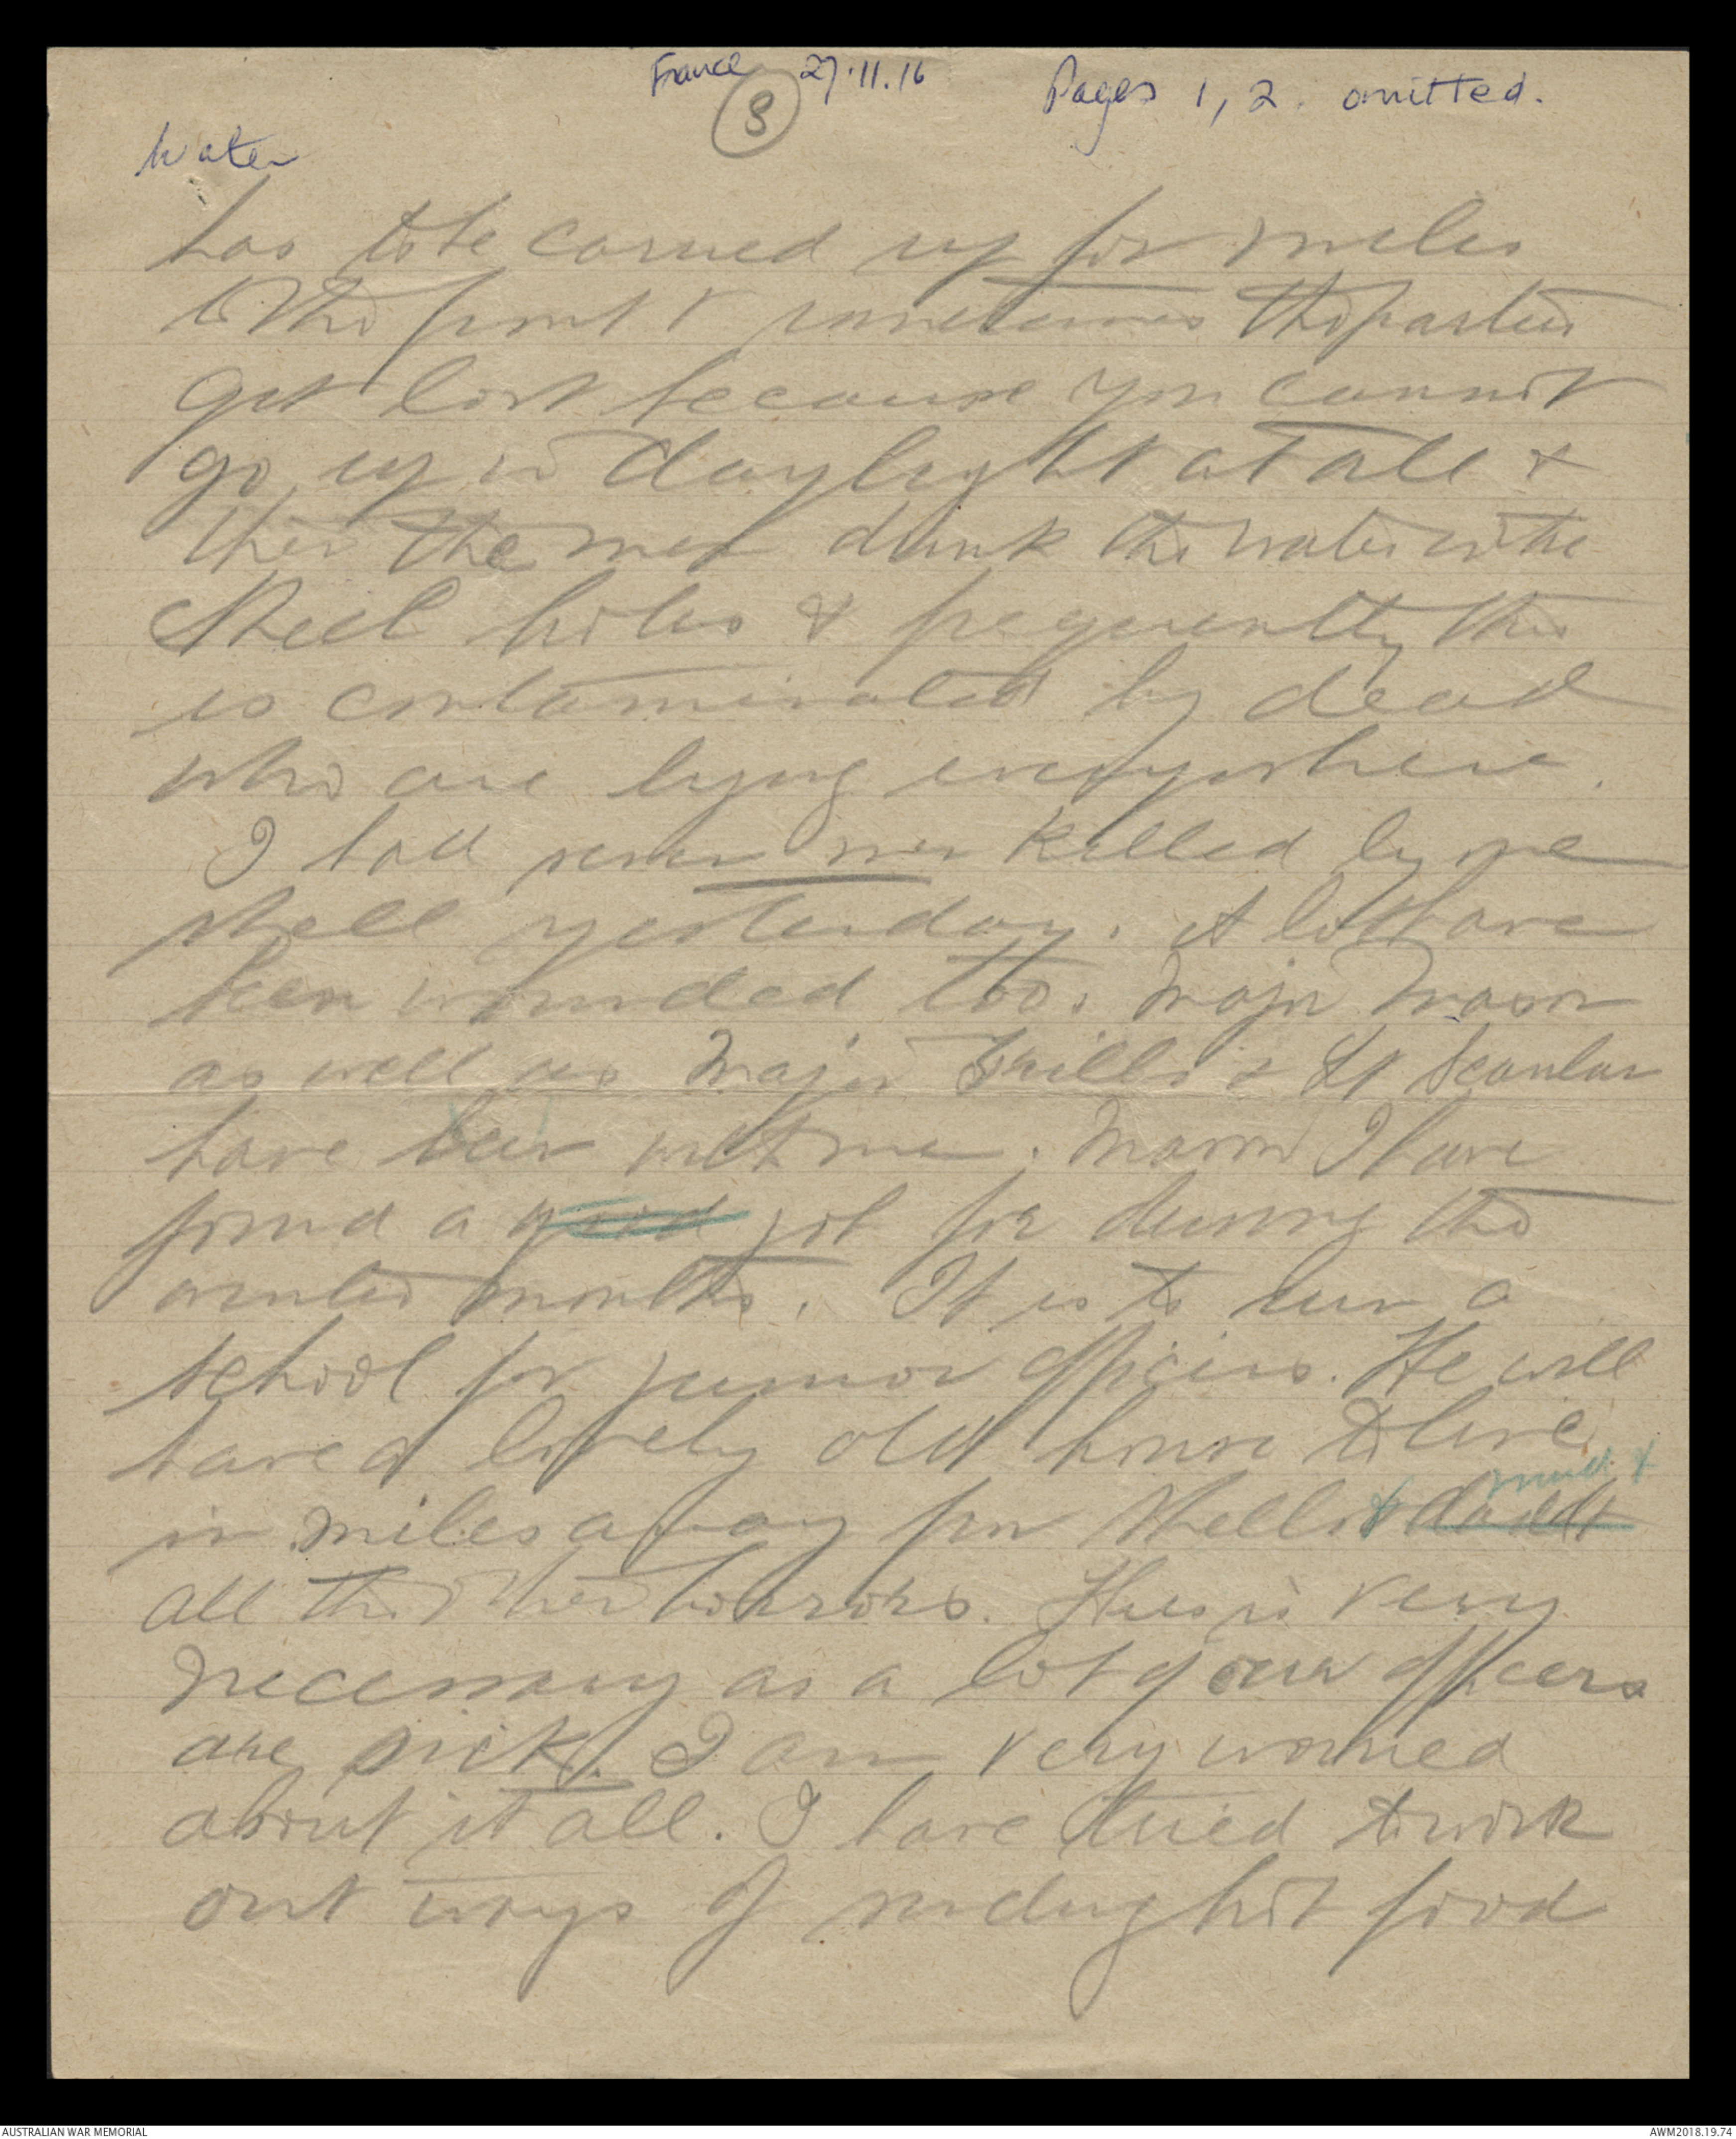 France 27.11.16
3
Pages 1, 2. omitted.
Water
has to be carried up for miles
to the front & sometimes the parties
get lost because you cannot
go up in daylight at all &
then the men drink the water in the
shell holes & frequently this
is contaminated by dead
who are lying everywhere.
I had seven men killed by one
shell yesterday. A lot have
been wounded too. Major Mason
as well as Major & Lt Scanlan
have been with me. Mason I have
found a good job for during the
winter months. It is to run a
school for junior officers. He will
have a lovely old house to live
mud &
in miles away from shells &
all the other horrors. This is very
necessary as a lot of our officers
are sick. I am very worried
about it all. I have tried to work
out ways of sending hot food
AUSTRALIAN WAR MEMORIAL
AWM2018.19.74